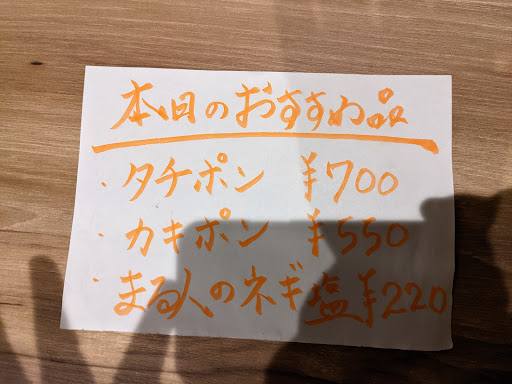 本日のおすすめ品
・タチポン ¥700
・カキポン ¥550
・まる人のネギ塩¥220